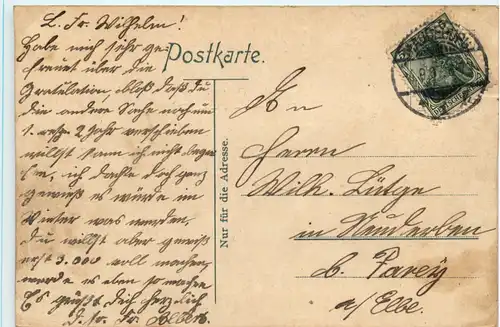 L. Fr. Wilhelm!
Habe mich sehr ge-
freuet über die
Gratulation, bloß daß du
die andere Sache noch um
1 resp. 2 Jahr verschieben
willst kann ich nicht begrei-
fen, ich dachte doch ganz
gewiß es würde im
Winter was werden,
du willst aber gewiß
erst 3.000 voll machen,
werde es eben so machen
Es grüßt Dich herzlich
D. Fr. Albert.
Postkarte.
Nur für die Adresse.
An
Herrn
Wilh. Lütge
in Neuderben
b. Parey
a/Elbe.